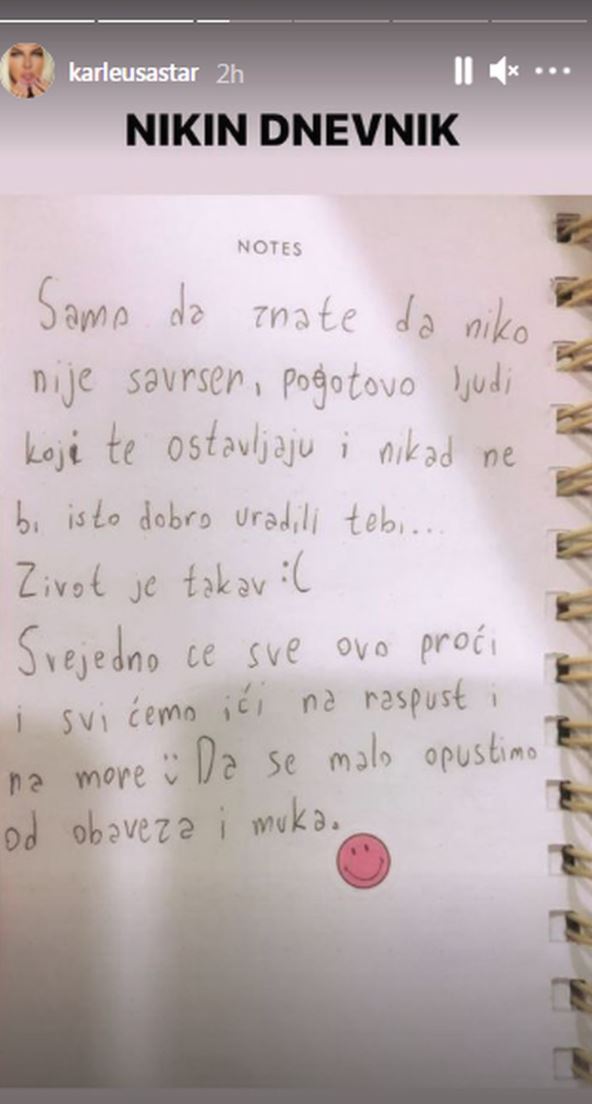 karleusastar 2h
NIKIN DNEVNIK
NOTES
Samo da znate da niko
nije savrsen, pogotovo ljudi
koji te ostavljaju i nikad ne
bi isto dobro uradili tebi...
Zivot je takav :(
Svejedno ce sve ovo proći
i svi ćemo ići na raspust i
na more :) Da se malo opustimo
od obaveza i muka.